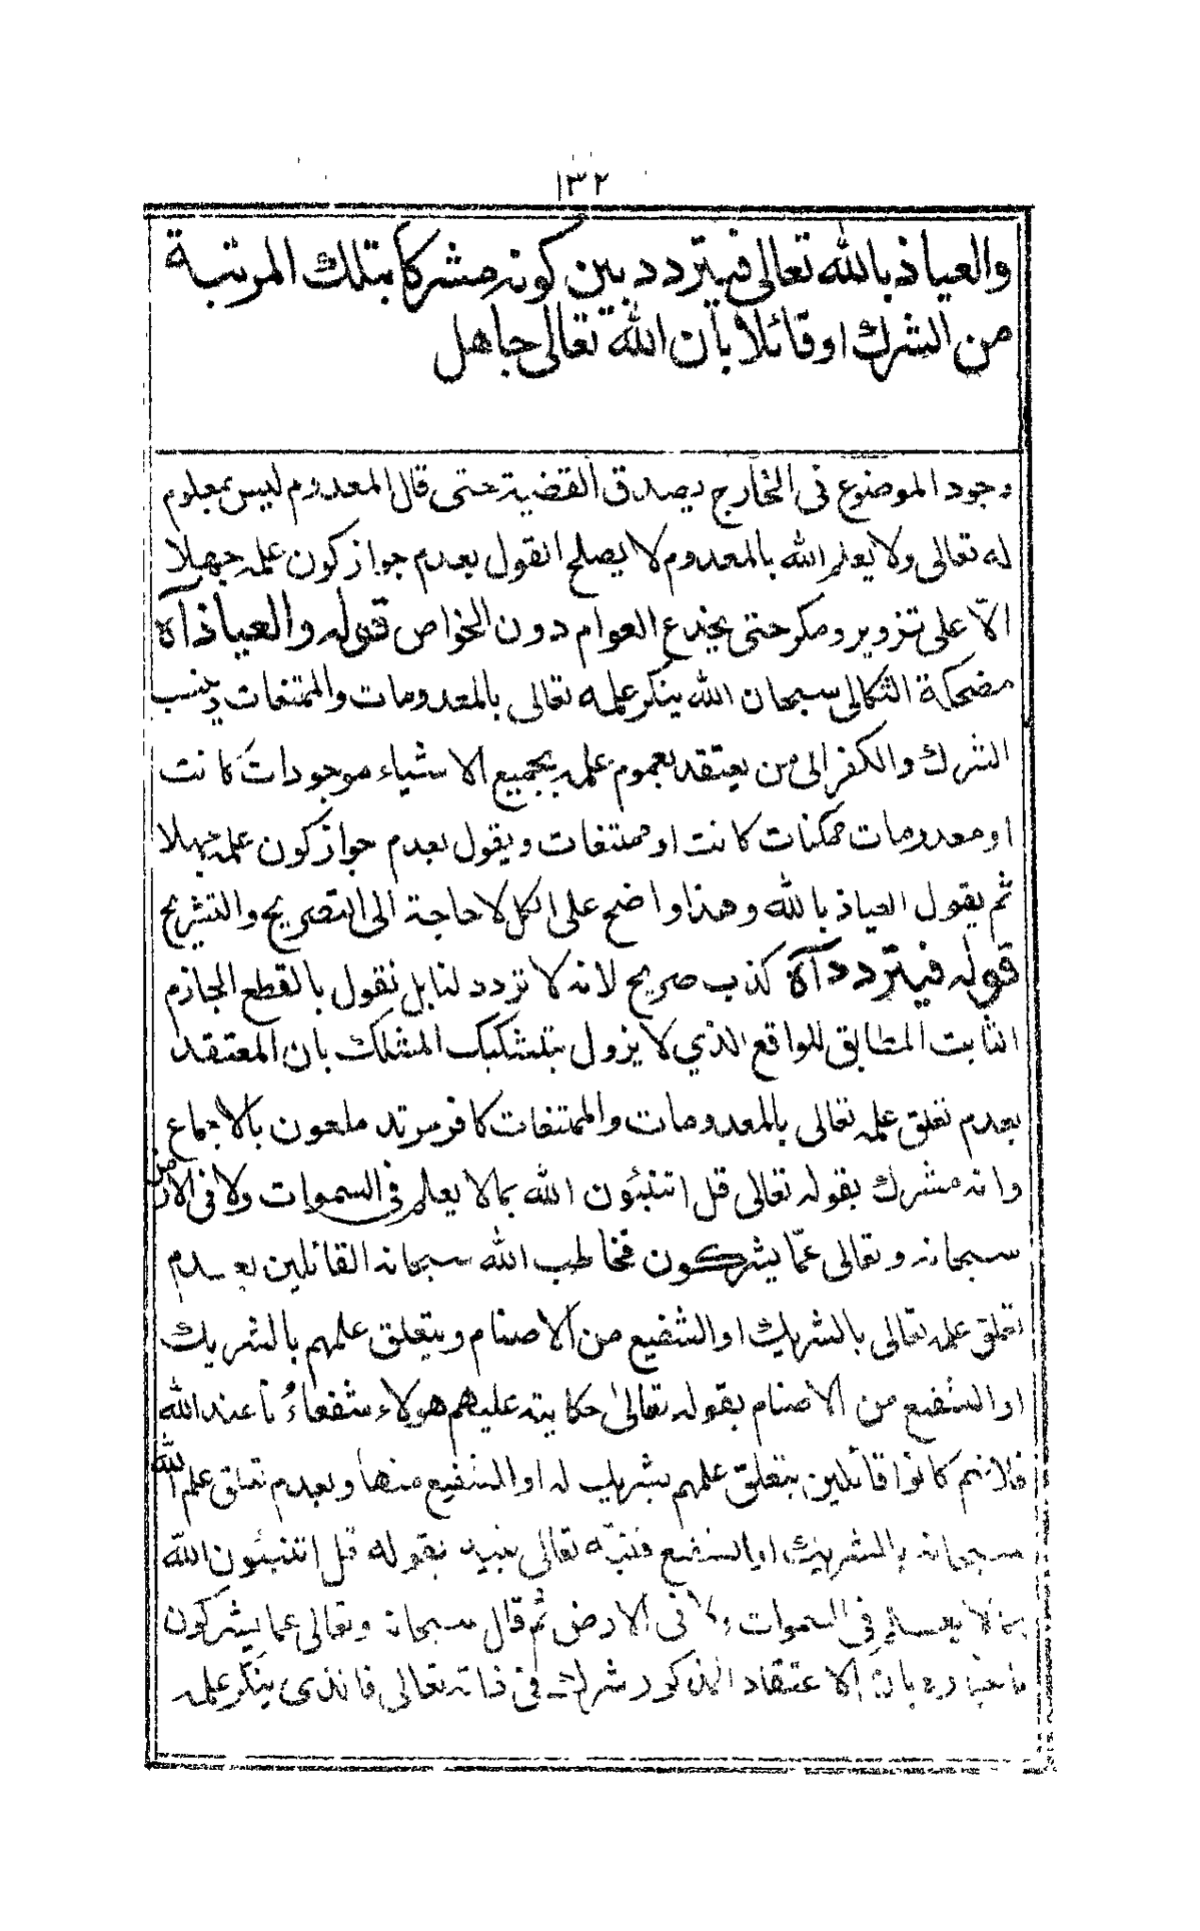 ١٣٢
والعياذ بالله تعالى فيتردد بين كونه مشركا بتلك المرتبة
من الشرك او قائلا بان الله تعالى جاهل
وجود الموضوع فى الخارج يصدق القضية حتى قال المعدوم ليس بمعلوم
له تعالى ولا يعلم الله بالمعدوم لا يصلح القول بعدم جواز كون علمه جهلا
الّا على تزوير ومكر حتى يخدع العوام دون الخواص قوله والعياذ آه
مضحكة الثكالى سبحان الله ينكر علمه تعالى بالمعدومات والممتنعات وينسب
الشرك والكفر الى من يعتقد بعموم علمه بجميع الاشياء موجودات كانت
او معدومات ممكنات كانت او ممتنعات ويقول بعدم جواز كون علمه جهلا
ثم يقول العياذ بالله وهذا واضح على الكل لا حاجة الى التصريح والتشريح
قوله فيتردد آه كذب صريح لانه لا تردد لنا بل نقول بالقطع الجازم
الثابت المطابق للواقع الذي لا يزول بتشكيك المشكك بان المعتقد
بعدم تعلق علمه تعالى بالمعدومات والممتنعات كافر مرتد ملعون بالاجماع
وانه مشرك بقوله تعالى قل اتنبئون الله بما لا يعلم فى السموات ولا فى الارض
سبحانه وتعالى عمّا يشركون فخاطب الله سبحانه القائلين بعدم
تعلق علمه تعالى بالشريك او الشفيع من الاصنام وبتعلق علمهم بالشريك
او الشفيع من الاصنام بقوله تعالىٰ حكاية عليهم هولاء شفعاءُنا عند الله
فلانهم كانوا قائلين بتعلق علمهم بشريك له او الشفيع منها وبعدم تعلق علم الله
سبحانه بالشريك او الشفيع فنبّه تعالى نبيه بقوله قل اتنبئون الله
بما لا يعلم في السموات ولا فى الارض ثم قال سبحانه وتعالى عما يشركون
بان الاعتقاد المذكور شرك فى ذاته تعالى فالذى ينكر علمه